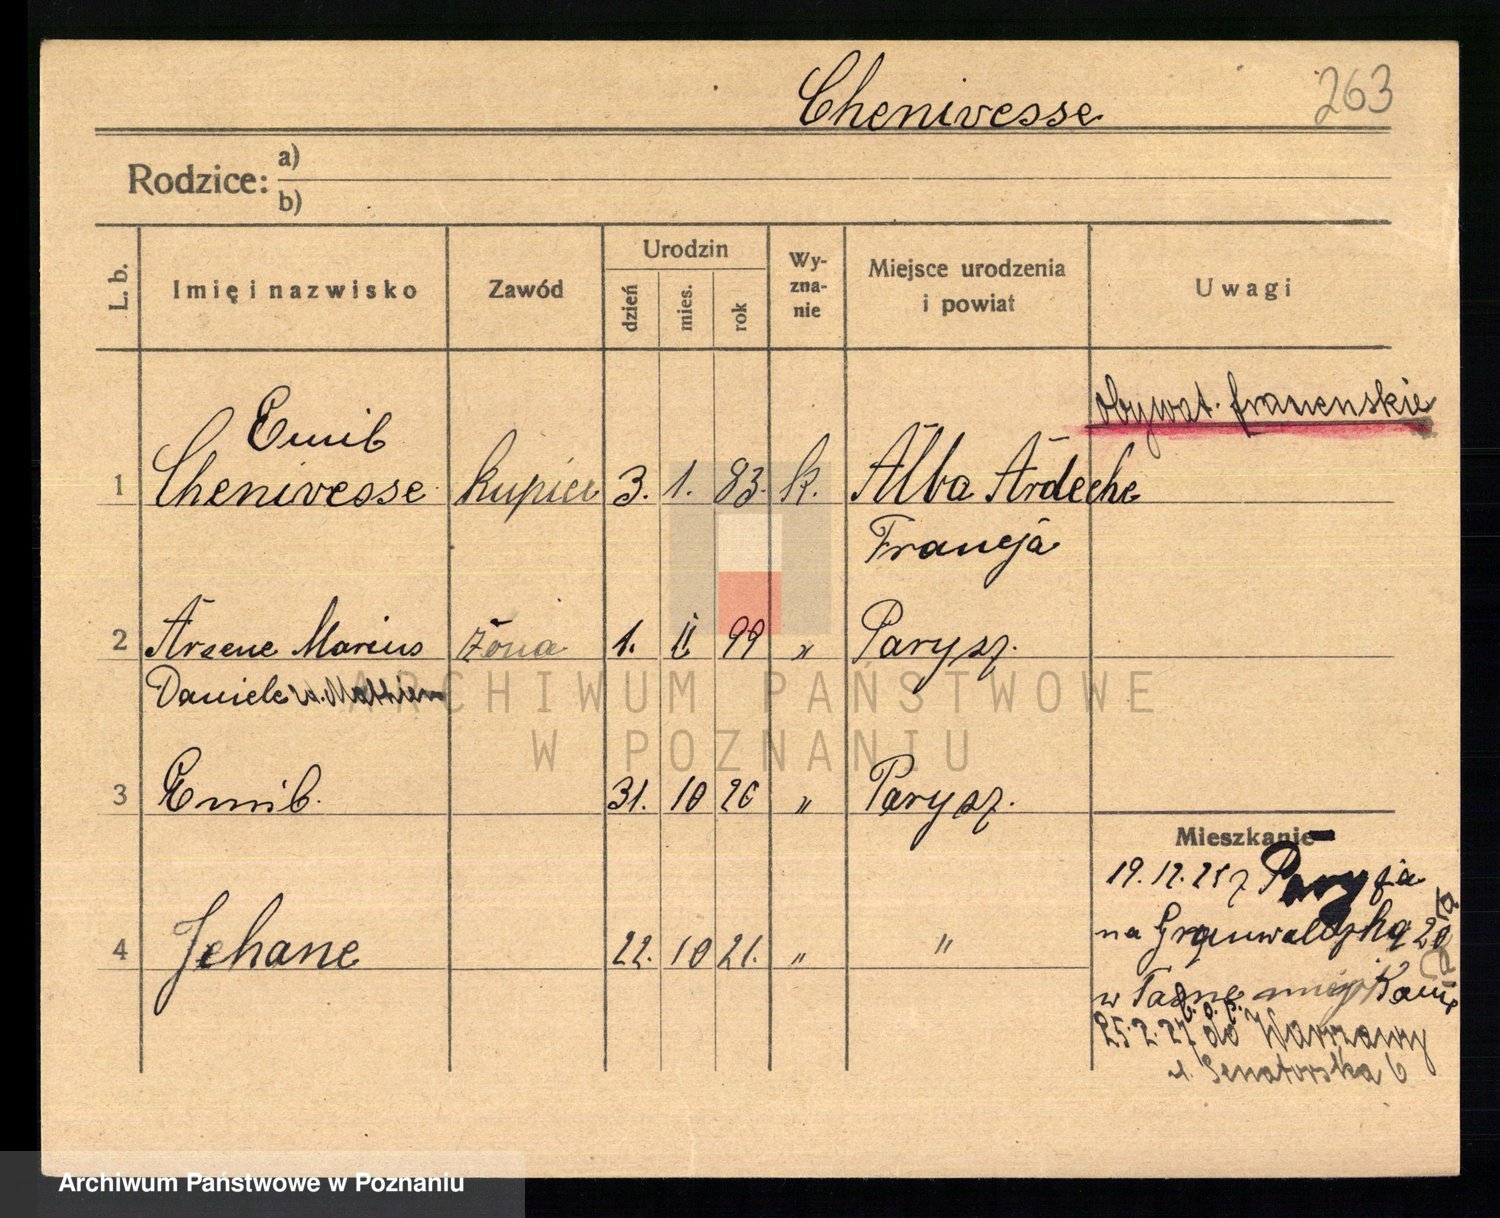 Chenivesse 263
Rodzice: a)
b)
L. b. Imię i nazwisko Zawód Urodzin dzień mies. rok Wy-zna-nie Miejsce urodzenia i powiat Uwagi
obywat. francuskie
Emil
1 Chenivesse kupiec 3. 1. 83. k. Alba Ardeche
Francja
2 Arsene Marius żona 1. II 99 " Parysz.
Daniele
3 Emil. 31. 10 26 " Parysz.
Mieszkanie
19.12.25 z
na Grunwaldzką 20
4 Jehane 22. 10 21. " "
w
25.2.27 do Warszawy
ul. Senatorska 6
ARCHIWUM PAŃSTWOWE
W POZNANIU
Archiwum Państwowe w Poznaniu